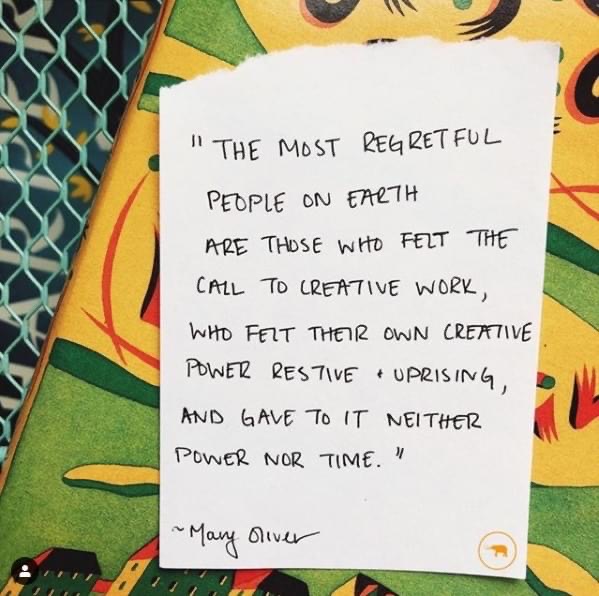 " THE MOST REGRETFUL
PEOPLE ON EARTH
ARE THOSE WHO FELT THE
CALL TO CREATIVE WORK,
WHO FELT THEIR OWN CREATIVE
POWER RESTIVE + UPRISING,
AND GAVE TO IT NEITHER
POWER NOR TIME. "
~ Mary Oliver